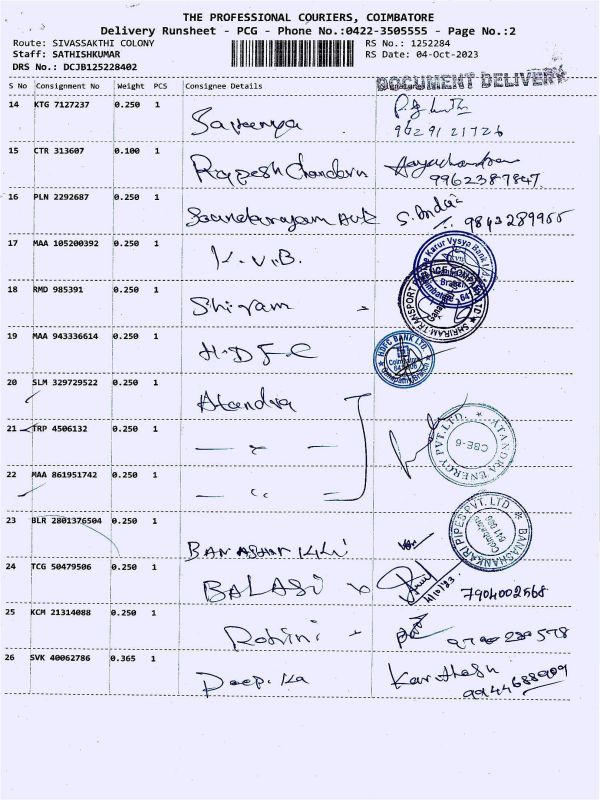 THE PROFESSIONAL COURIERS, COIMBATORE
Delivery Runsheet - PCG - Phone No.:0422-3505555 - Page No.:2
Route: SIVASSAKTHI COLONY RS No.: 1252284
Staff: SATHISHKUMAR RS Date: 04-Oct-2023
DRS No.: DCJB125228402
DOCUMENT DELIVERY
S No Consignment No Weight PCS Consignee Details
14 KTG 7127237 0.250 1
96291 21726
15 CTR 313607 0.100 1 Rajesh Chandran
9962387847
16 PLN 2292687 0.250 1 9843289955
17 MAA 105200392 0.250 1 K.V.B.
Karur Vysya Bank
18 RMD 985391 0.250 1 Shriram
SHRIRAM TRANSPORT FINANCE COMPANY LTD
19 MAA 943336614 0.250 1 H.D.F.C
HDFC BANK LTD
Coimbatore
Ganapathy Branch
20 SLM 329729522 0.250 1 Atandra
21 TRP 4506132 0.250 1 — " —
ATANDRA ENERGY PVT. LTD.
CBE-6
22 MAA 861951742 0.250 1 — " —
23 BLR 2801376504 0.250 1 BANASHANKARI
BANASHANKARI PIPES PVT. LTD
Coimbatore
641 006
24 TCG 50479506 0.250 1 BALAJI
4/10/23
7904002568
25 KCM 21314088 0.250 1 Rohini
26 SVK 40062786 0.365 1 Deepika Karthesh
9944688909